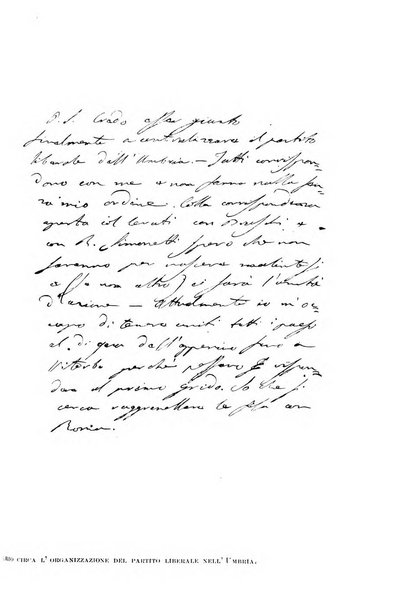 P. S. Credo esser giunto
finalmente a centralizzare il partito
liberale dell'Umbria. – Tutti corrispon-
dono con me e non fanno nulla sen-
za mio ordine. Colla corrispondenza
aperta col Levati con e
con R. Simonetti spero che non
saranno per nascere malintesi
e (se non altro) ci sarà l'unità
d'azione – Attualmente io m'oc-
cupo di tenere uniti tutti i paesi
al di qua dell'apennino fino a
Viterbo perchè possano rispon-
dere al primo grido. So che si
cerca rappezzare le fila con
Roma.
RIO CIRCA L'ORGANIZZAZIONE DEL PARTITO LIBERALE NELL'UMBRIA.